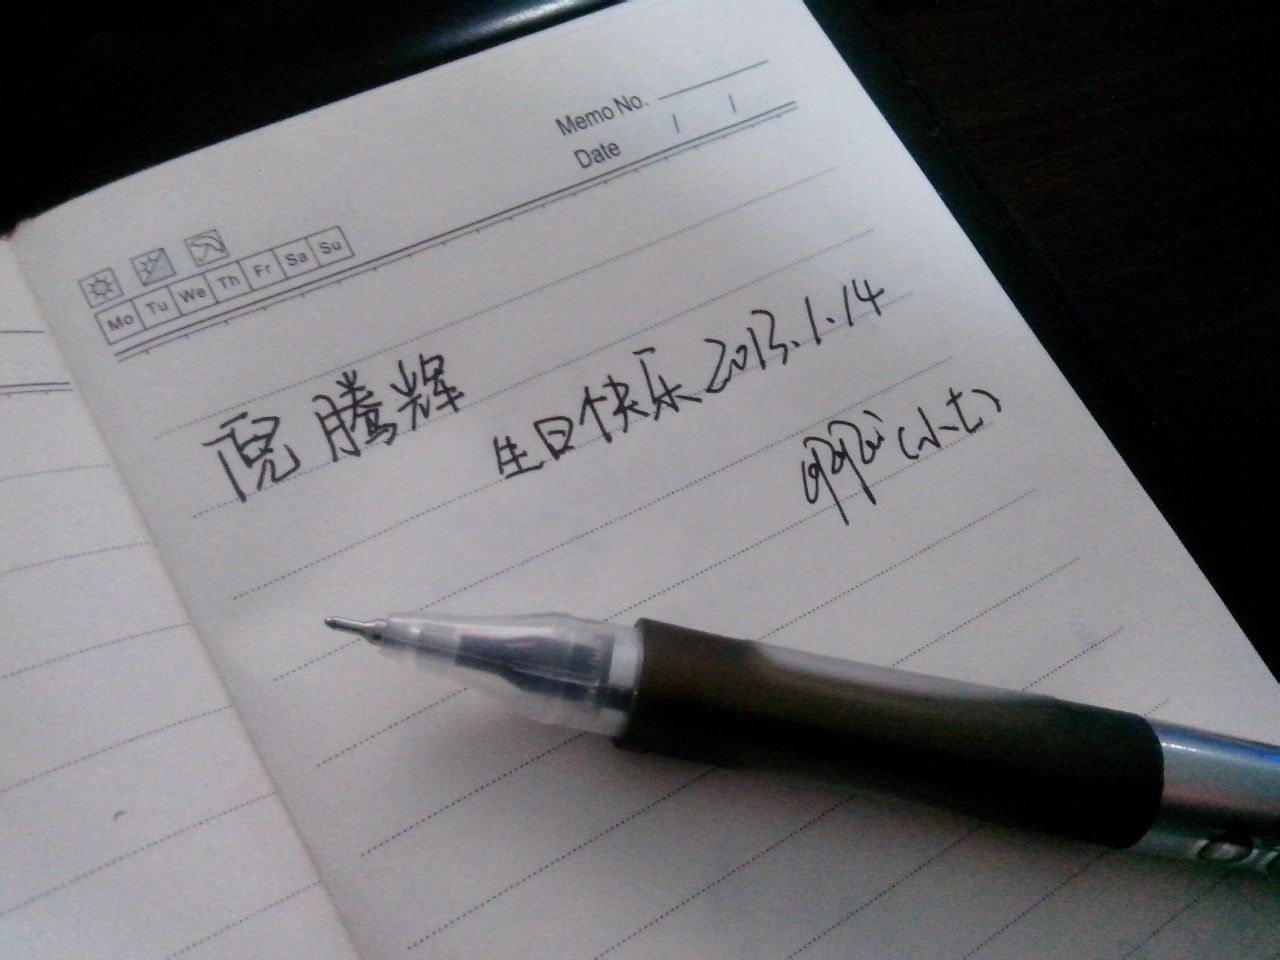 Memo No.
Date / /
Mo Tu We Th Fr Sa Su
倪腾辉
生日快乐 2013.1.14
(小七)